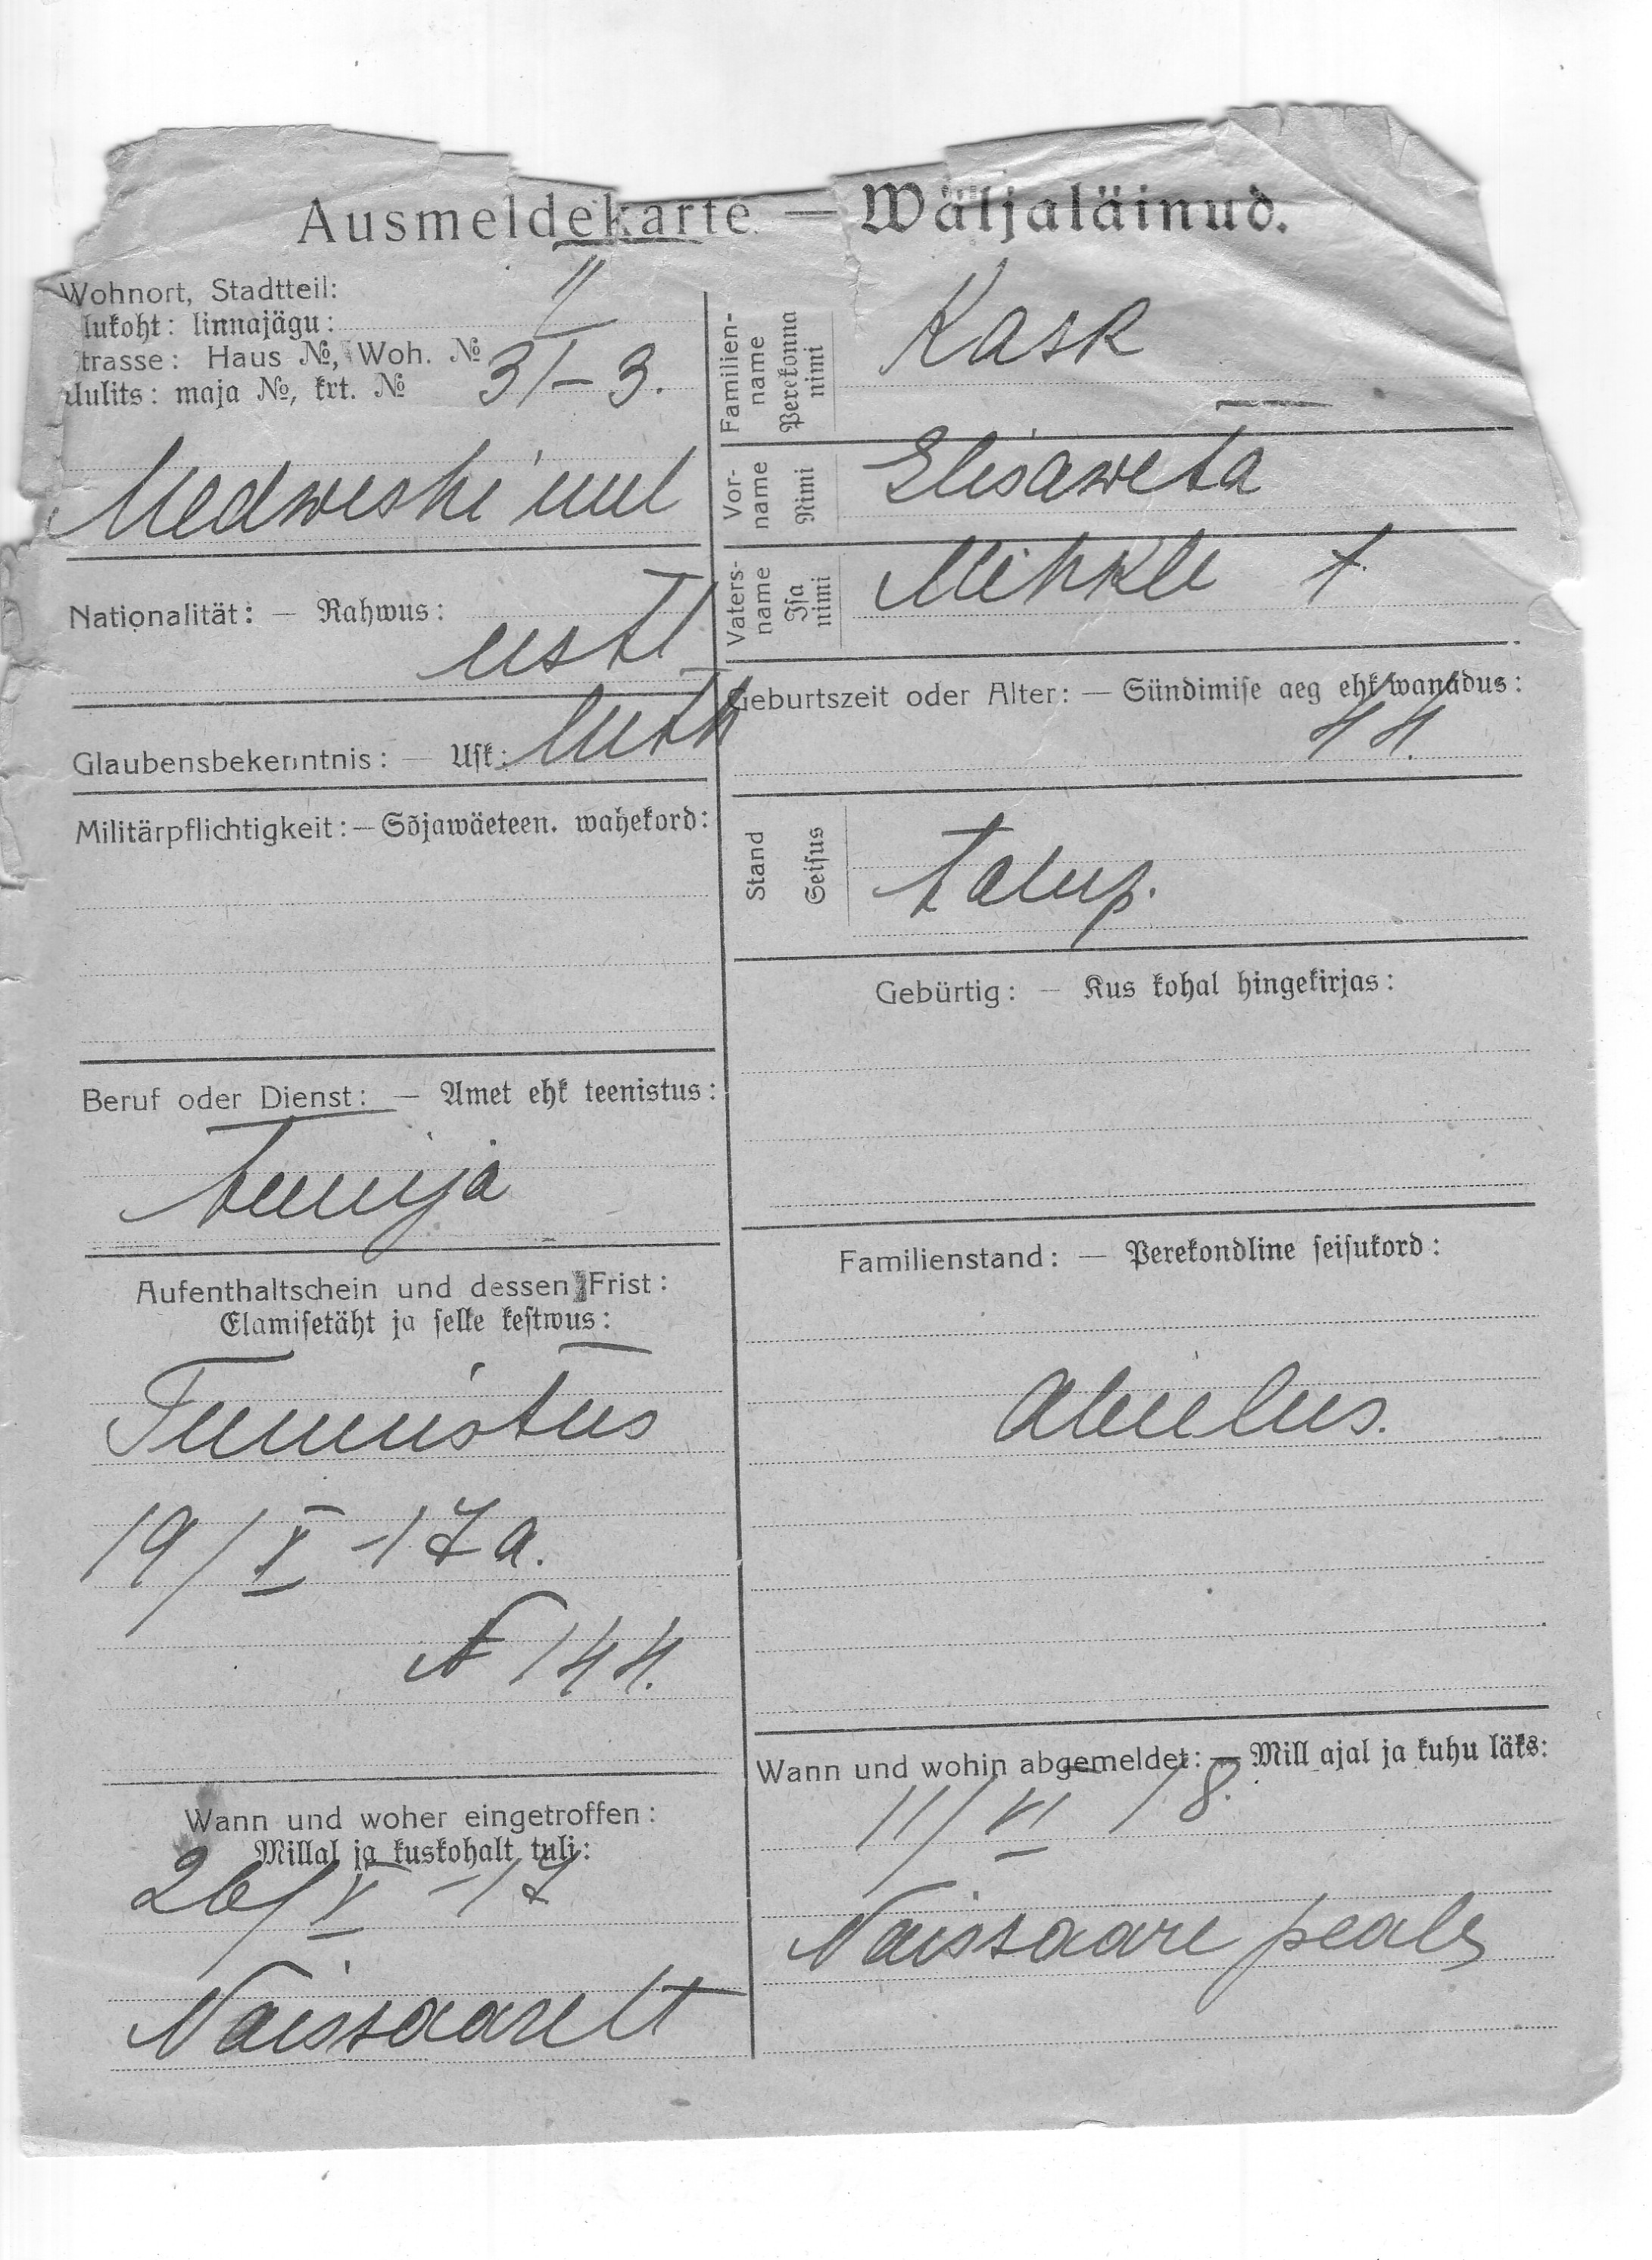 Ausmeldekarte — Wäljaläinud.
Wohnort, Stadtteil: II
lukoht: linnajägu:
trasse: Haus №, Woh. №
Uulits: maja №, krt. № 31–3.
Medweski uul
Nationalität: — Rahwus:
eestl
Glaubensbekenntnis: — Usk: luth
Militärpflichtigkeit: — Sõjawäeteen. wahekord:
Beruf oder Dienst: — Amet ehk teenistus:
teenija
Aufenthaltschein und dessen Frist:
Elamisetäht ja selle kestwus:
Tunnistus
19/V -17 a.
№ 144.
Wann und woher eingetroffen:
Millal ja kuskohalt tuli:
26/V -17
Naissaarelt
Familien-name Perekonna nimi Kask
Vor-name Nimi Elisaweta
Vaters-name Isa nimi Mihkli t.
Geburtszeit oder Alter: — Sündimise aeg ehk wanadus:
44.
Stand Seisus talup.
Gebürtig: — Kus kohal hingekirjas:
Familienstand: — Perekondline seisukord:
abielus.
Wann und wohin abgemeldet: — Mill ajal ja kuhu läks:
11/VI 18.
Naissaare peale